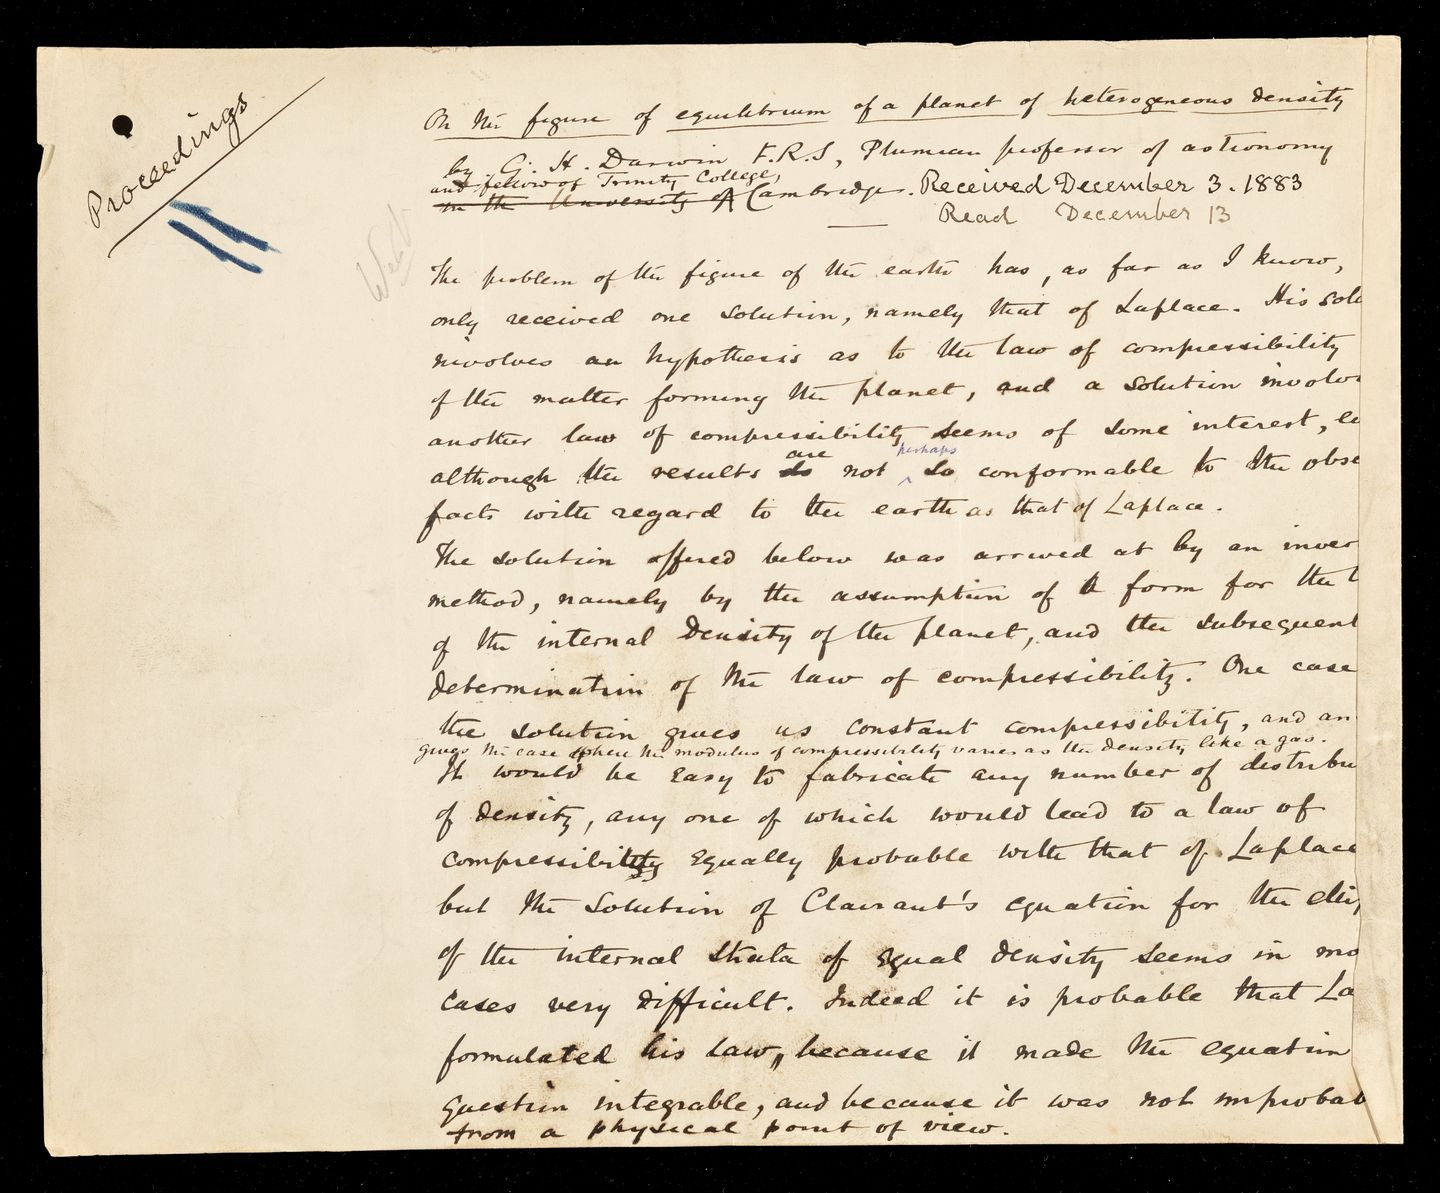 Proceedings
On the figure of equilibrium of a planet of heterogeneous density
by G. H. Darwin F.R.S, Plumian professor of astronomy
and fellow of Trinity College,
in the University of Cambridge. Received December 3. 1883
Read December 13
The problem of the figure of the earth has, as far as I know,
only received one solution, namely that of Laplace. His solu
involves an hypothesis as to the law of compressibility
of the matter forming the planet, and a solution involv
another law of compressibility seems of some interest,
perhaps
are
although the results do not so conformable to the obse
facts with regard to the earth as that of Laplace.
The solution offered below was arrived at by an inver
method, namely by the assumption of a form for the l
of the internal density of the planet, and the subsequent
determination of the law of compressibility. One case
the solution gives us constant compressibility, and an
gives the case where the modulus of compressibility varies as the density like a gas.
It would be easy to fabricate any number of distribu
of density, any one of which would lead to a law of
compressibility equally probable with that of Laplace
but the solution of Clairaut's equation for the elli
of the internal strata of equal density seems in mo
cases very difficult. Indeed it is probable that La
formulated his law, because it made the equation
question integrable, and because it was not improbab
from a physical point of view.